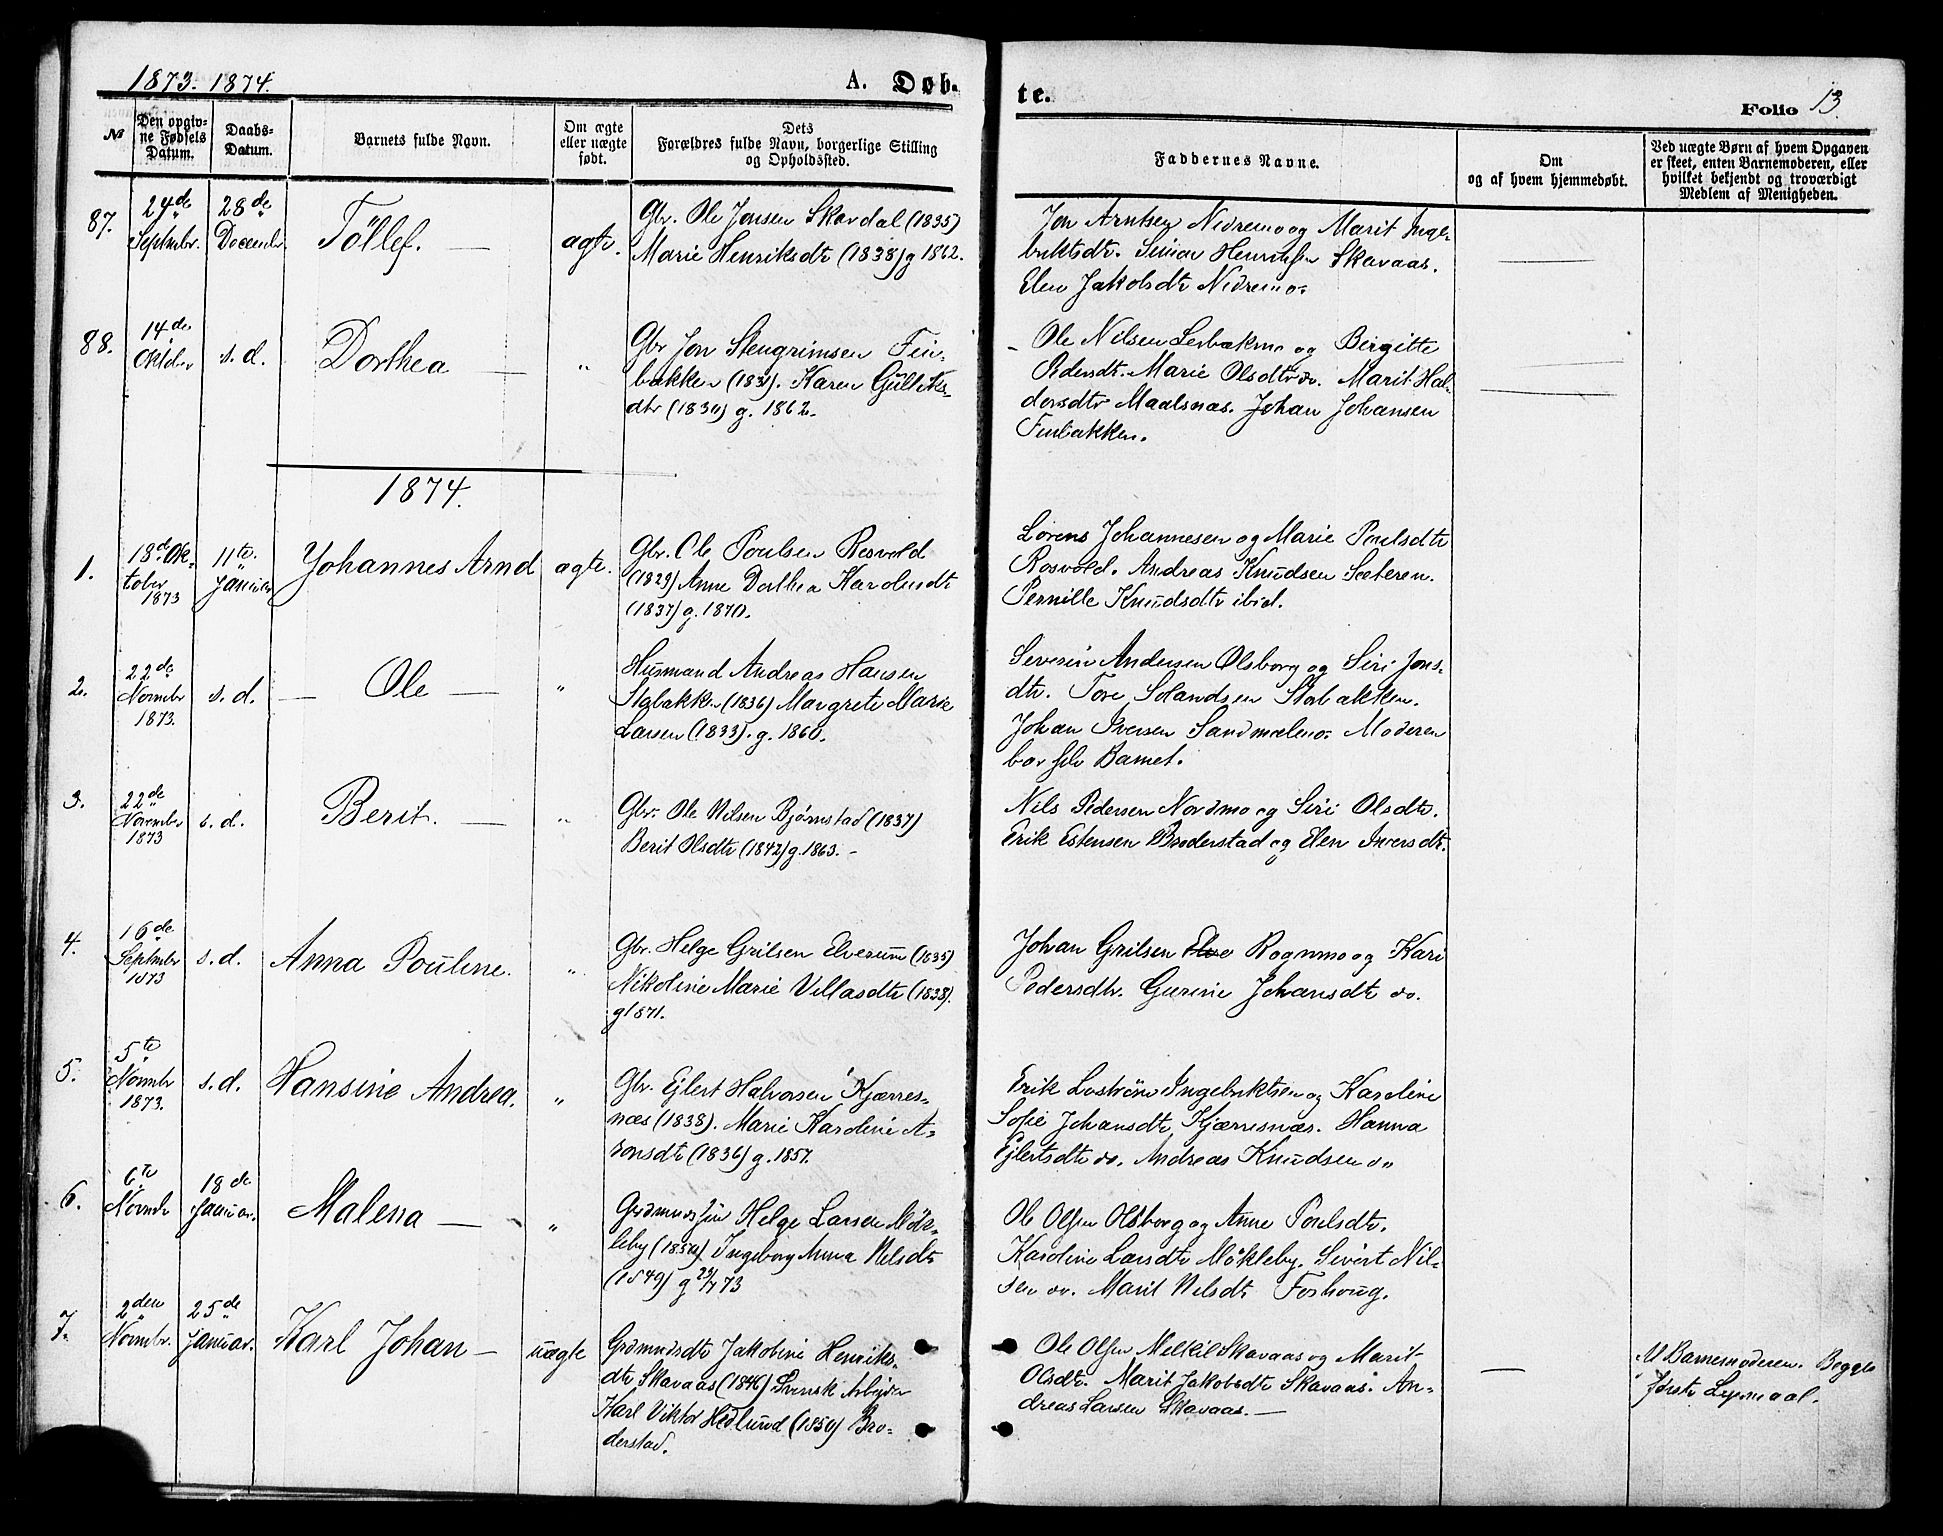 1873. 1874.
A. Døb-
te.
Folio 13.
№
Den opgiv-
ne Fødsels
Datum.
Daabs-
Datum.
Barnets fulde Navn.
Om ægte
eller uægte
født.
Dets
Forældres fulde Navn, borgerlige Stilling
og Opholdssted.
Faddernes Navne.
Om
og af hvem hjemmedøbt.
Ved uægte Børn af hvem Opgaven
er skeet, enten Barnemoderen, eller
hvilket bekjendt og troværdigt
Medlem af Menigheden.
87.
24de
Septmbr.
28de
Decembr.
Töllef. —
ægte.
Gbr. Ole Jonsen Skardal (1835)
Marie Henriksdtr (1838) g 1862.
Jon Arntsen Nedremo og Marit Inge-
briktsdtr. Simon Henriksen Skavaas.
Elen Jakobsdtr Nedremo.
88.
14de
Oktober
s. d.
Dorthea —
"
Gbr Jon Stengrimsen Fin-
bakken (1831). Karen Gulliks-
dtr (1830) g. 1862.
Ole Nilsen Lerbækmo og Birgitte
Pedersdt. Marie Olsdtr do. Marit Hal-
dorsdtr Maalsnæs. Johan Johansen
Finbakken.
1874.
1.
18de Ok-
tober
1873
11te
Januar
Johannes Arnd
ægte.
Gbr. Ole Poulsen Rosvold
(1829) Anne Dorthea Karolusdt
(1837) g. 1870.
Lorens Johannesen og Marie Poulsdtr
Rosvold. Andreas Knudsen Sæteren.
Pernille Knudsdtr ibid.
2.
22de
Novmbr
1873.
s. d.
— Ole —
"
Husmand Andreas Hansen
Stabakken (1836) Margrete Marie
Larsen (1833). g. 1860.
Severin Andersen Olsborg og Siri Jons-
dtr. Tore Solandsen Stabakken.
Johan Iversen Sandmælmo. Moderen
bar selv Barnet.
3.
22de
November
1873
s. d.
Berit. —
"
Gbr. Ole Nilsen Bjørnstad (1837)
Berit Olsdtr (1842) g. 1863. -
Nils Pedersen Nordmo og Siri Olsdtr.
Erik Estensen Broderstad og Elen Iversdt.
4.
16de
Septmbr
1873
s. d.
Anna Pouline.
"
Gbr. Helge Grilsen Elverum (1835)
Nikoline Marie Villasdtr (1838).
g 1871.
Johan Grilsen Elve Rognmo og Kari
Pedersdtr. Gurine Johansdtr do.
5.
5te
Novmbr
1873.
s. d.
Hansine Andrea.
"
Gbr. Ejlert Halvorsen Kjærres-
næs (1838). Marie Karoline A-
ronsdtr (1836) g. 1857.
Erik Ingebriktsen og Karoline
Sofie Johansdtr Kjærresnæs. Hanna
Ejlertsdtr do. Andreas Knudsen do
6.
6te
Novmbr
18de
Januar.
Malena —
"
Helge Larsen Møk-
leby (1850) Ingeborg Anna Nilsdtr
(1849) g 73
Ole Olsen Olsborg og Anne Poulsdtr.
Karoline Larsdtr Møkleby. Sivert Nil-
sen do. Marit Nilsdtr Foshoug.
7.
2den
Novmbr.
25de
Januar.
Karl Johan —
uægte
Grdmndsdtr Jakobine Henriks-
dtr Skavaas (1846) Svensk Arbejder
Karl Viktor Hedlund (1850) Bro-
derstad.
Ole Olsen Melkil Skavaas og Marit
Olsdtr. Marit Jakobsdtr Skavaas. An-
dreas Larsen Skavaas. —
Af Barnemoderen. Begges
første Lejermaal.